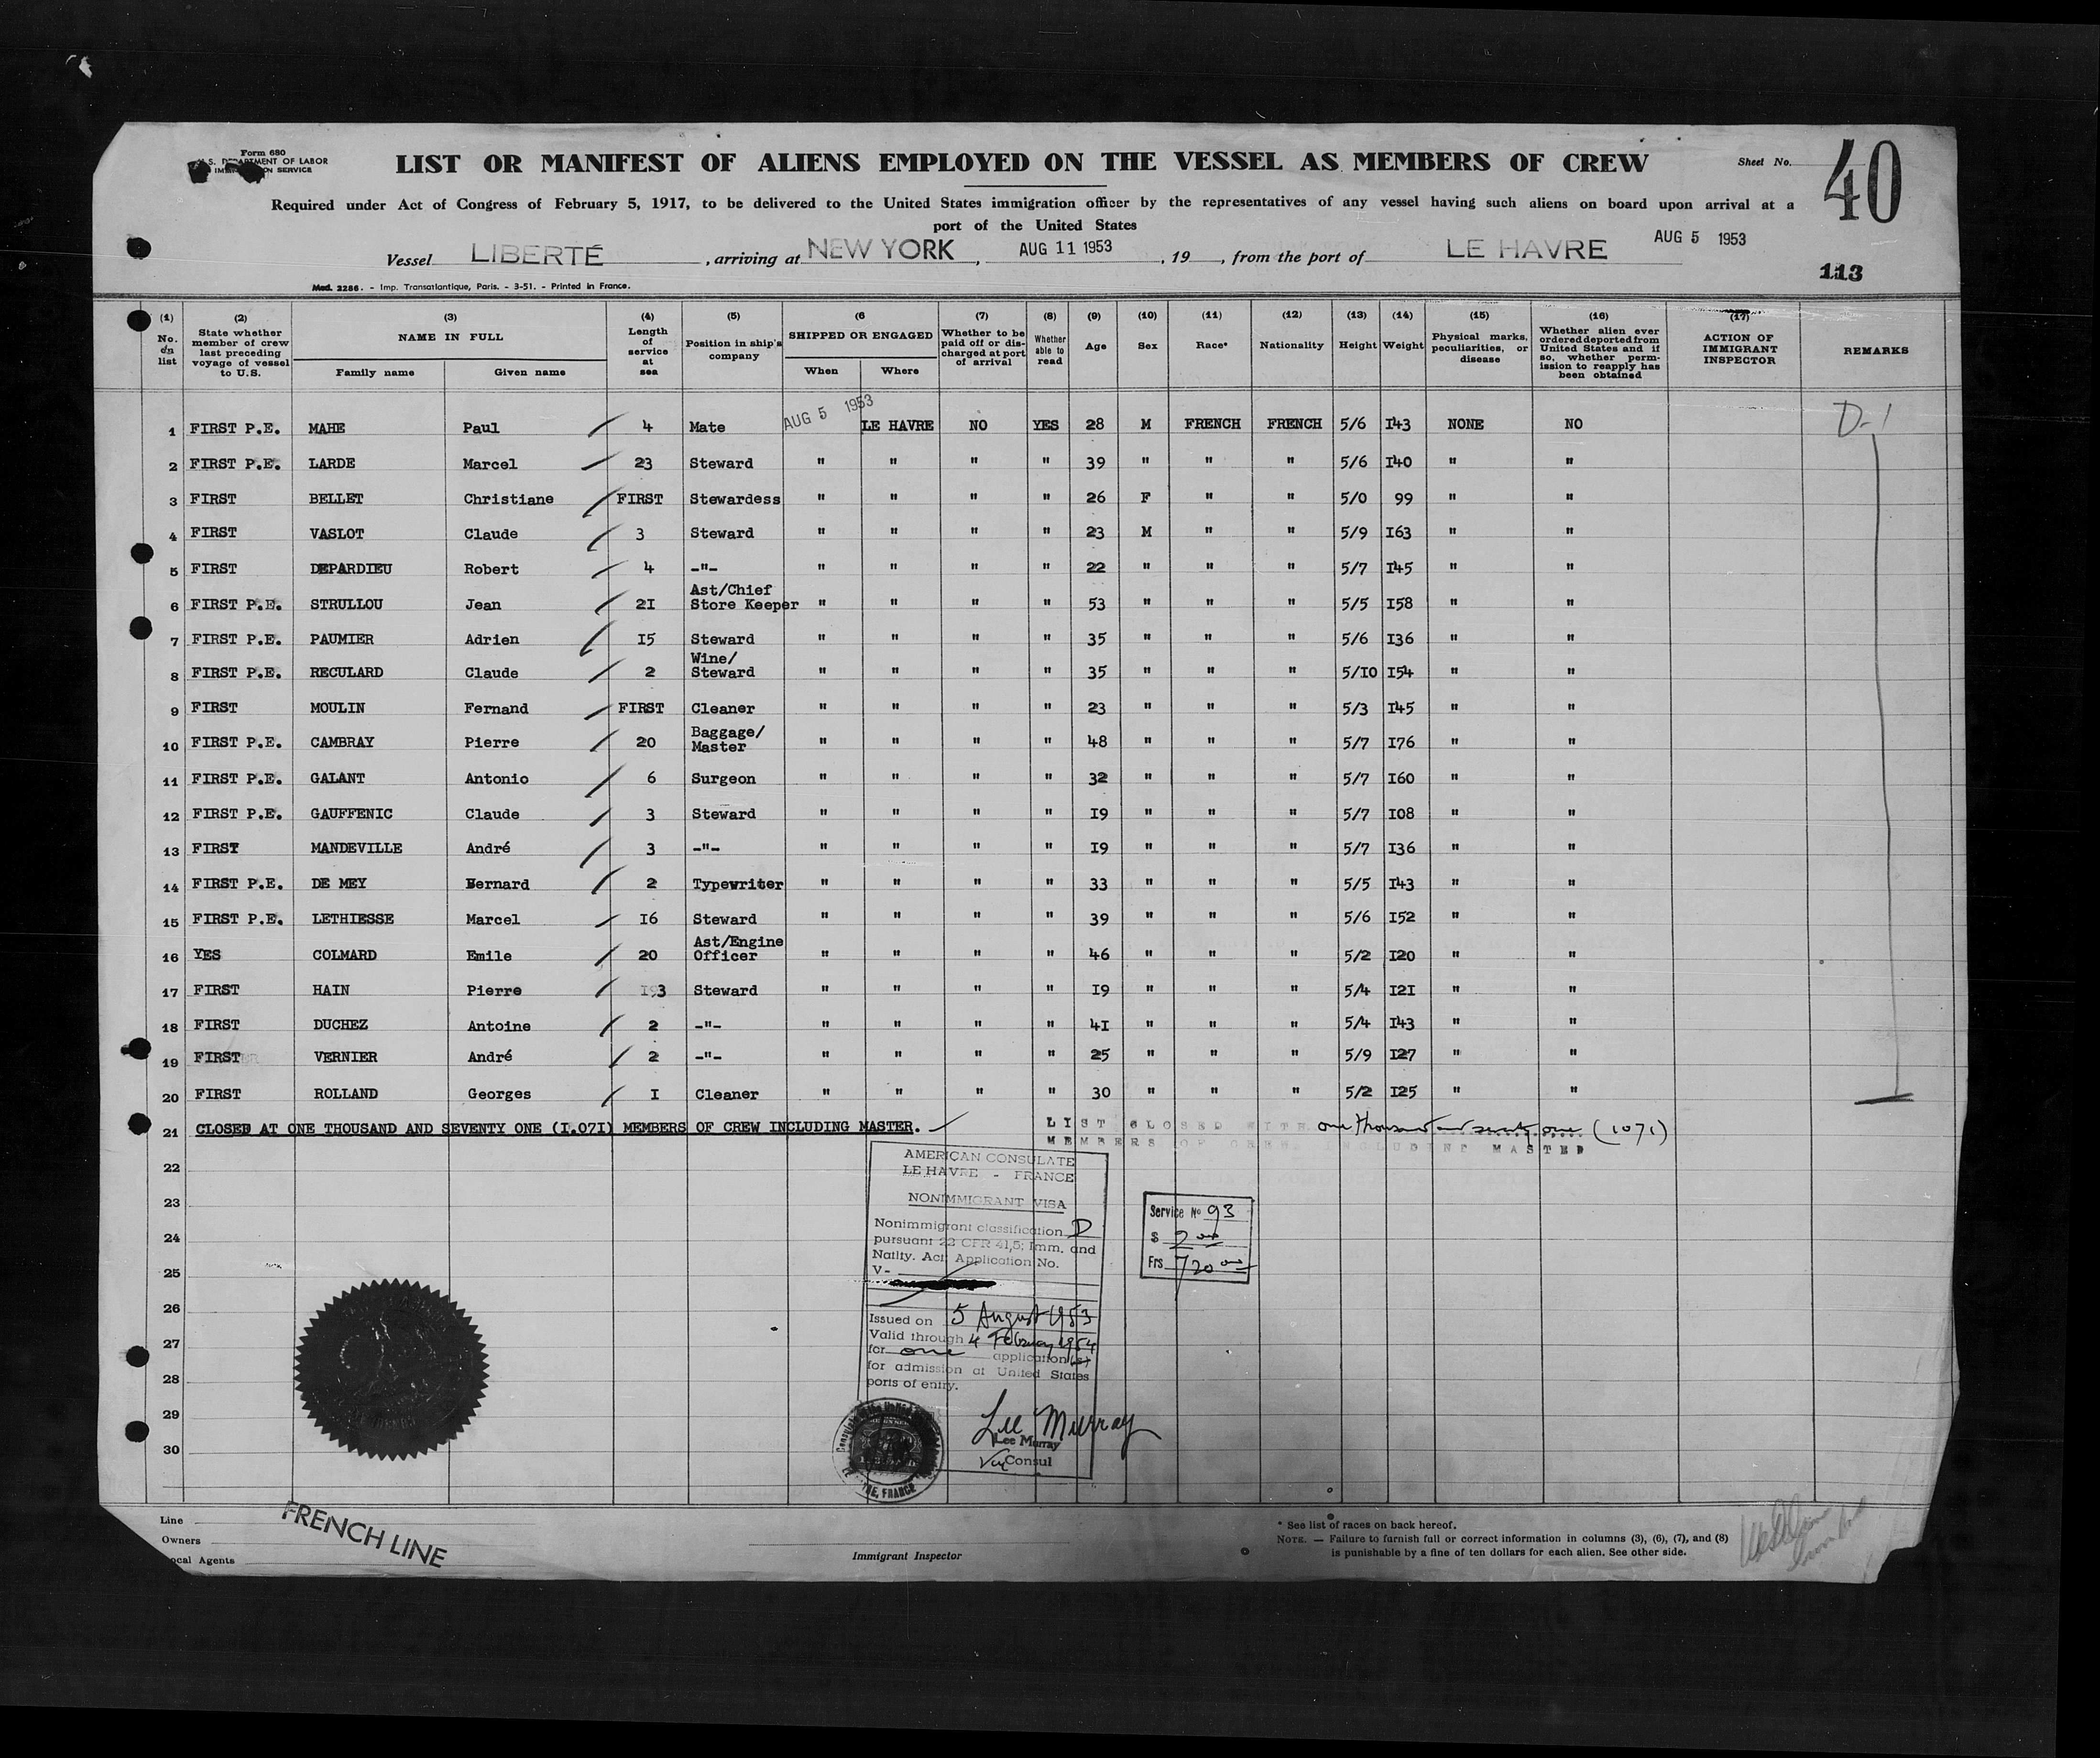 Form 680
U.S. DEPARTMENT OF LABOR
IMMIGRATION SERVICE
LIST OR MANIFEST OF ALIENS EMPLOYED ON THE VESSEL AS MEMBERS OF CREW
Sheet No. 40
Required under Act of Congress of February 5, 1917, to be delivered to the United States immigration officer by the representatives of any vessel having such aliens on board upon arrival at a
port of the United States
Vessel LIBERTÉ, arriving at NEW YORK, AUG 11 1953, 19, from the port of LE HAVRE AUG 5 1953
113
Mod. 2286. - Imp. Transatlantique, Paris. - 3-51. - Printed in France.
(1) No. on list (2) State whether member of crew last preceding voyage of vessel to U.S. (3) NAME IN FULL Family name Given name (4) Length of service at sea (5) Position in ship's company (6 SHIPPED OR ENGAGED When Where (7) Whether to be paid off or discharged at port of arrival (8) Whether able to read (9) Age (10) Sex (11) Race* (12) Nationality (13) Height (14) Weight (15) Physical marks, peculiarities, or disease (16) Whether alien ever ordered deported from United States and if so, whether permission to reapply has been obtained (17) ACTION OF IMMIGRANT INSPECTOR REMARKS
1 FIRST P.E. MAHE Paul 4 Mate AUG 5 1953 LE HAVRE NO YES 28 M FRENCH FRENCH 5/6 I43 NONE NO D-1
2 FIRST P.E. LARDE Marcel 23 Steward " " " " 39 " " " 5/6 I40 " "
3 FIRST BELLET Christiane FIRST Stewardess " " " " 26 F " " 5/0 99 " "
4 FIRST VASLOT Claude 3 Steward " " " " 23 M " " 5/9 I63 " "
5 FIRST DEPARDIEU Robert 4 -"- " " " " 22 " " " 5/7 I45 " "
6 FIRST P.E. STRULLOU Jean 2I Ast/Chief Store Keeper " " " " 53 " " " 5/5 I58 " "
7 FIRST P.E. PAUMIER Adrien I5 Steward " " " " 35 " " " 5/6 I36 " "
8 FIRST P.E. RECULARD Claude 2 Wine/ Steward " " " " 35 " " " 5/I0 I54 " "
9 FIRST MOULIN Fernand FIRST Cleaner " " " " 23 " " " 5/3 I45 " "
10 FIRST P.E. CAMBRAY Pierre 20 Baggage/ Master " " " " 48 " " " 5/7 I76 " "
11 FIRST P.E. GALANT Antonio 6 Surgeon " " " " 32 " " " 5/7 I60 " "
12 FIRST P.E. GAUFFENIC Claude 3 Steward " " " " I9 " " " 5/7 I08 " "
13 FIRST MANDEVILLE André 3 -"- " " " " I9 " " " 5/7 I36 " "
14 FIRST P.E. DE MEY Bernard 2 Typewriter " " " " 33 " " " 5/5 I43 " "
15 FIRST P.E. LETHIESSE Marcel I6 Steward " " " " 39 " " " 5/6 I52 " "
16 YES COLMARD Emile 20 Ast/Engine Officer " " " " 46 " " " 5/2 I20 " "
17 FIRST HAIN Pierre 3 Steward " " " " I9 " " " 5/4 I2I " "
18 FIRST DUCHEZ Antoine 2 -"- " " " " 4I " " " 5/4 I43 " "
19 FIRST VERNIER André 2 -"- " " " " 25 " " " 5/9 I27 " "
20 FIRST ROLLAND Georges I Cleaner " " " " 30 " " " 5/2 I25 " "
21 CLOSED AT ONE THOUSAND AND SEVENTY ONE (I.07I) MEMBERS OF CREW INCLUDING MASTER. LIST CLOSED WITH one thousand and seventy one (1071)
MEMBERS OF CREW, INCLUDING MASTER
22
23
24
25
26
27
28
29
30
AMERICAN CONSULATE
LE HAVRE - FRANCE
NONIMMIGRANT VISA
Nonimmigrant classification D
pursuant 22 CFR 41,5; Imm. and
Natlty. Act Application No.
V-
Issued on 5 August 1953
Valid through 4 February 1954
for one application(s)
for admission at United States
ports of entry.
Lee Murray
Lee Murray
Vice Consul
Service No 93
$ 2 00
Frs 720 00
FRANCE
Line
Owners
Local Agents
FRENCH LINE
Immigrant Inspector
* See list of races on back hereof.
NOTE. — Failure to furnish full or correct information in columns (3), (6), (7), and (8)
is punishable by a fine of ten dollars for each alien. See other side.